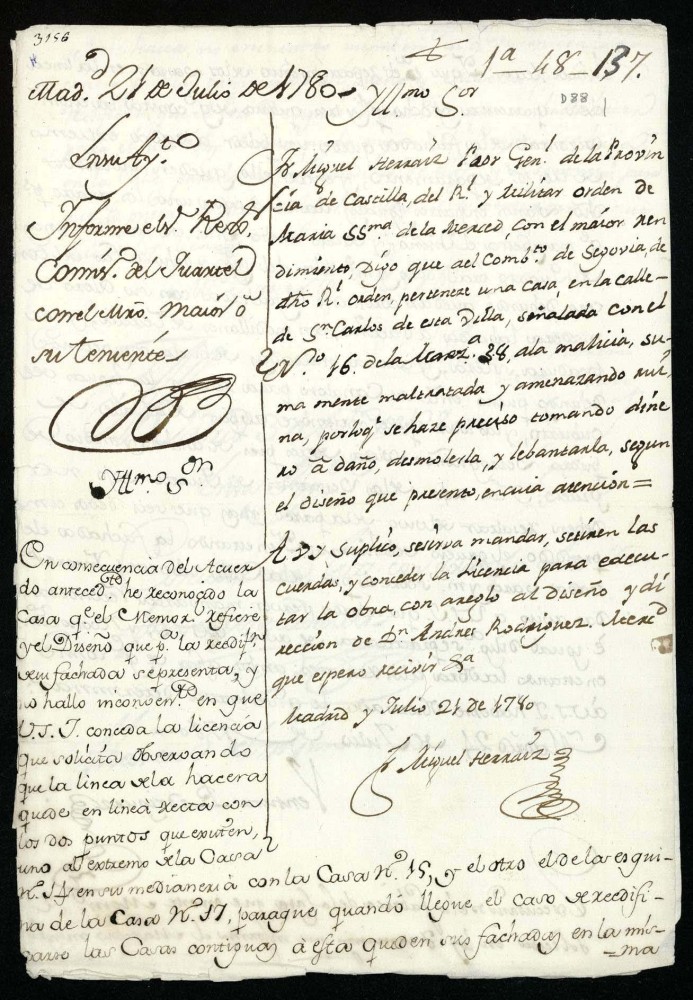 3156
1ª-48-137.
D88
Mad.d 21 de Julio de 1780
Yllmo Sor
En su Ay.to
Ynforme el s.r Rexor.
Comis.o del Quartel
con el Mro. Maior ó
su teniente
Fr Miguel Herraiz Pror Gen.l de la Provin
cia de Castilla, del R.l y Militar Orden de
Maria SSma de la Merced con el maior ren
dimiento, Digo que al Comb.to de Segovia, de
dho R.l Orden, perteneze una Casa, en la calle
de Sn Carlos de esta Villa, señalada con el
N.o 16. de la Manz.a 38, a la malicia, su-
ma mente maltratada y amenazando rui-
na, por loq.e se haze preciso tomando dine
ro à daño, desmolerla, y lebantarla, segun
el diseño que presento, en cuia atención=
A V.Y Suplico, se sirva mandar, se tiren las
cuerdas, y conceder la Licencia para execu-
tar la obra, con areglo al Diseño y di
rección de Dn Andres Rodriguez. Merced
que espero recivir Sa
Madrid y Julio 21 de 1780
Fr Miguel Herraiz
Yllmo Sor
En consecuencia del Acuer
do anteced.te he reconocido la
Casa q.e el Memor.l refiere
y el Diseño que p.a la reedif.n
de su fachada se presenta, y
no hallo inconven.te en que
V.S.I. conceda la licencia
que solicita observando
que la linea de la hacera
quede en linea recta con
los dos puntos que existen,
uno al extremo de la Casa
N.o 14 en su medianeria con la Casa N.o 15, y el otro el de la esqui-
na de la Casa N.o 17, para que quando llegue el caso de reedifi-
carse las Casas contiguas à esta queden sus fachadas en la mis-
=ma